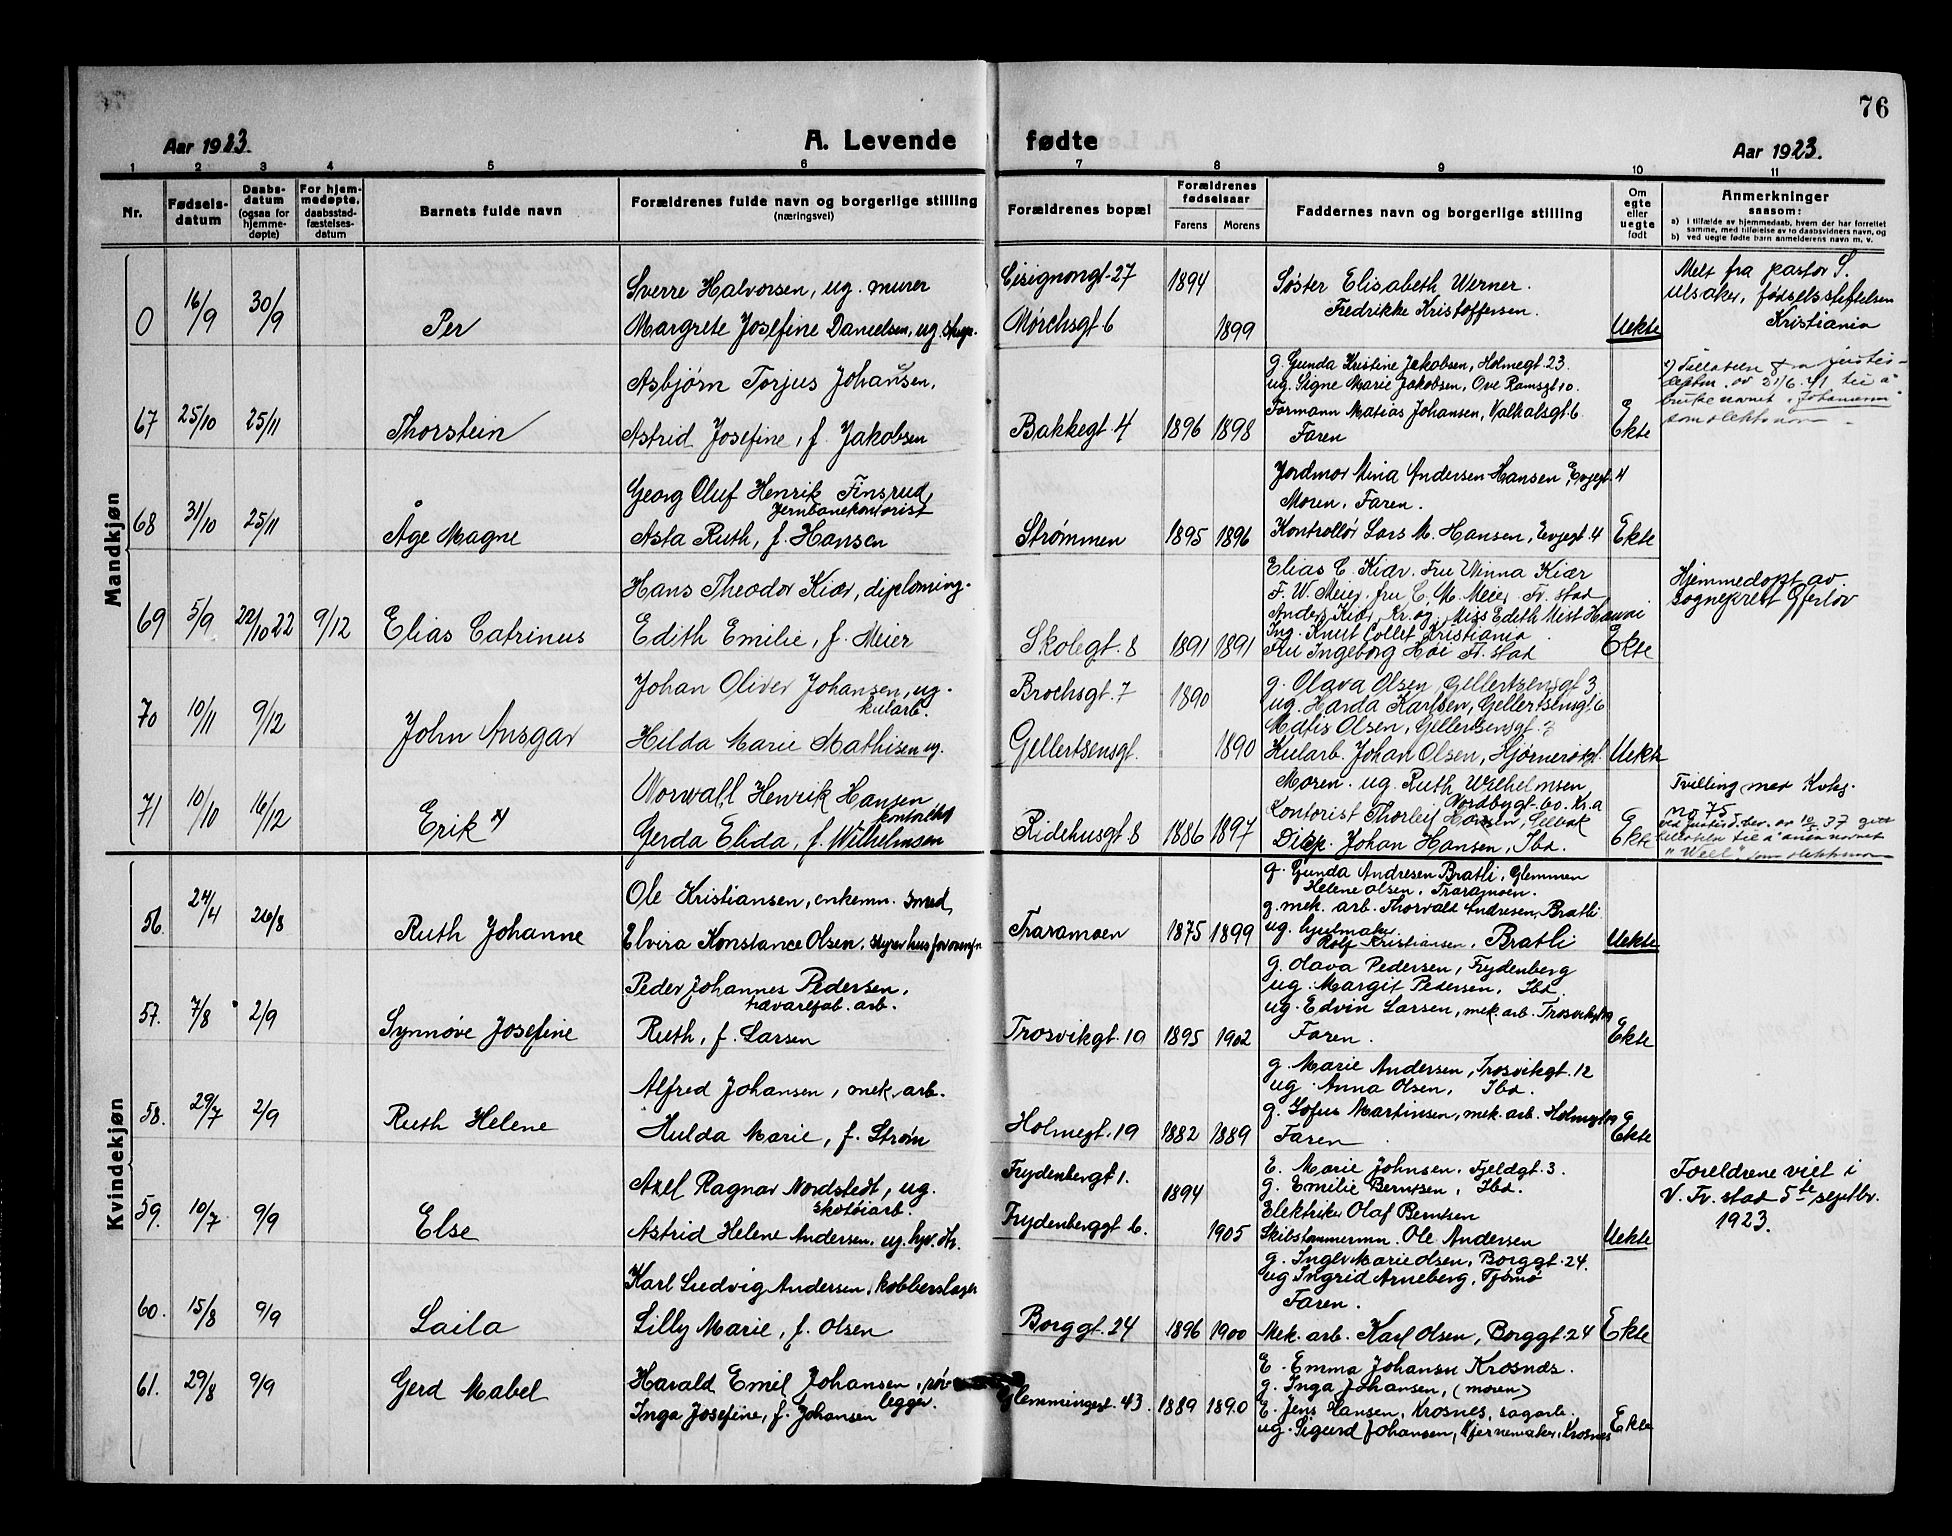 76
Aar 1923.
A. Levende
fødte
Aar 1923.
1 2 3 4 5 6 7 8 9 10 11
Nr.
Fødsels-
datum
Daabs-
datum
(ogsaa for
hjemme-
døpte)
For hjem-
medøpte,
daabsstad-
fæstelses-
datum
Barnets fulde navn
Forældrenes fulde navn og borgerlige stilling
(næringsvei)
Forældrenes bopæl
Forældrenes
fødselsaar
Farens Morens
Faddernes navn og borgerlige stilling
Om
egte
eller
uegte
født
Anmerkninger
saasom:
a) i tilfælde av hjemmedaab, hvem der har forrettet
samme, med tilføielse av to daabsvidners navn, og
b) ved uegte fødte barn anmelderens navn m. v.
Mandkjøn
0 16/9 30/9 Per
Sverre Halvorsen, ug. murer
Margrete Josefine Danielsen, ug.
Mørchsgt 6
1894 1899
Søster Elisabeth Werner.
Fredrikke Kristoffersen.
Uekte
Melt fra pastor S.
Ulsaker, fødselsstiftelsen
Kristiania
67 25/10 25/11 Thorstein
Asbjørn Torjus Johansen,
Astrid Josefine, f. Jakobsen
Bakkegt 4 1896 1898
g. Gunda Kristine Jakobsen, Holmegt 23.
ug. Signe Marie Jakobsen, Ove Ramsgt 10.
Formann Matias Johansen, Valkalsgt 6
Faren
Ekte
68 31/10 25/11 Åge Magne
Georg Oluf Henrik Finsrud,
Jernbanekontorist
Asta Ruth, f. Hansen
Strømmen 1895 1896
Jordmor Mina Andersen Hansen, Evjegt. 4
Moren, Faren.
Kontrollør Lars M. Hansen, Evjegt. 4
Ekte
69 5/9 22/10 22 9/12 Elias Catrinus
Hans Theodor Kiær, diploming.
Edith Emilie, f. Meier
Skolegt. 8 1891 1891
Elias C. Kiær. Fru Minna Kiær
F. W. Meier, fru C. M. Meier Fr. stad
Anders Kiær, Kr. og Miss Edith
Ing. Knut Collet Kristiania
Fru Ingeborg Høe Fr. stad
Ekte
Hjemmedøpt av
sogneprest Gjerløv
70 10/11 9/12 John Ansgar
Johan Oliver Johansen, ug.
kularb.
Hilda Marie Mathisen ug.
Brochsgt. 7
Gellertsensgt.
1890 1890
g. Olava Olsen, Gellertsensgt 3
ug. Harda Karlsen, Gellertsensgt 6
Matis Olsen, Gellertsensgt. 3
Kularb. Johan Olsen,
Uekte
71 10/10 16/12 Erik x)
Worwall Henrik Hansen
kontorist
Gerda Elida, f. Wilhelmsen
Ridehusgt. 8 1886 1897
Moren. ug Ruth Wilhelmsen
Nordbygt. 60. Kr.a
Kontorist Thorleif Hansen, Selbak
Disp. Johan Hansen, Ibd.
Ekte
Tvilling med Kvkj.
No 75
Kvindekjøn
56. 24/4 26/8 Ruth Johanne
Ole Kristiansen, enkemn. smed,
Elvira Konstance Olsen, styrer hus for ovennevn
Traramoen 1875 1899
g. Gunda Andresen Bratli, Glemmen
Helene Olsen, Traramoen.
g. mek. arb. Thorvald Andresen, Bratli
ug. hjulmaker
Rolf Kristiansen, Bratli
Uekte
57. 7/8 2/9 Synnøve Josefine
Peder Johannes Pedersen,
trævarefab. arb.
Ruth, f. Larsen
Trosvikgt. 19 1895 1902
g. Olava Pedersen, Frydenberg
ug. Margit Pedersen, Ibd.
ug. Edvin Larsen, mek. arb. Trosvikgt 19
Faren.
Ekte
58. 29/7 2/9 Ruth Helene
Alfred Johansen, mek. arb.
Hulda Marie, f. Strøm
Holmegt. 19 1882 1889
g. Marie Andersen, Trosvikgt. 12
ug. Anna Olsen, Ibd.
g. Sofus Martinsen, mek. arb. Holmegt 19
Faren
Ekte
59. 10/7 9/9 Else
Axel Ragnar Nordstedt, ug.
skotøiarb.
Astrid Helene Andersen, ug. hjv. dtr.
Frydenbergt 1.
Frydenberggt 6.
1894 1905
E. Marie Johnsen, Fjeldgt. 3.
g. Emilie Berntsen, Ibd.
Elektriker Olaf Berntsen
Skibstømmermn. Ole Andersen
Uekte
Foreldrene viet i
V. Fr. stad 5te septbr.
1923.
60. 15/8 9/9 Laila
Karl Ludvig Andersen, kobberslager
Lilly Marie, f. Olsen
Borggt. 24 1896 1900
g. Inglv Marie Olsen, Borggt. 24.
ug Ingrid Arneberg, Tjømø
Faren.
Mek. arb. Karl Olsen, Borggt. 24
Ekte
61. 29/8 9/9 Gerd Mabel
Harald Emil Johansen, rør-
legger.
Inga Josefine, f. Johansen
Glemmingegt. 43. 1889 1890
E. Emma Johansen Krosnæs.
g. Inga Johansen, (moren)
E. Jens Hansen, Krosnes, sagarb.
ug. Sigurd Johansen, Kjernemaker, Krosnes
Ekte